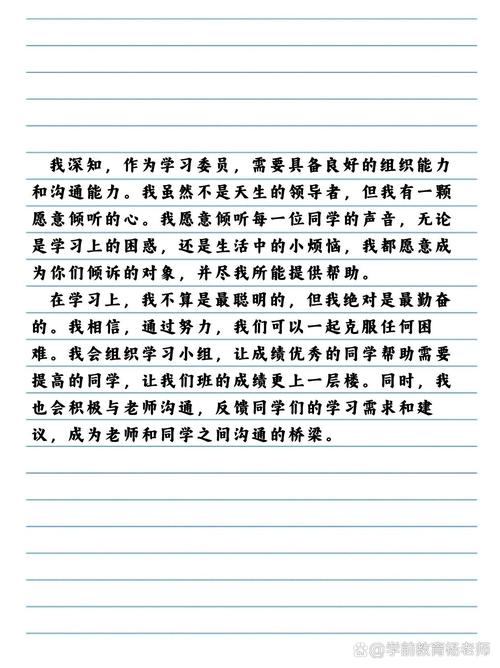 我深知，作为学习委员，需要具备良好的组织能力
和沟通能力。我虽然不是天生的领导者，但我有一颗
愿意倾听的心。我愿意倾听每一位同学的声音，无论
是学习上的困惑，还是生活中的小烦恼，我都愿意成
为你们倾诉的对象，并尽我所能提供帮助。
在学习上，我不算是最聪明的，但我绝对是最勤奋
的。我相信，通过努力，我们可以一起克服任何困
难。我会组织学习小组，让成绩优秀的同学帮助需要
提高的同学，让我们班的成绩更上一层楼。同时，我
也会积极与老师沟通，反馈同学们的学习需求和建
议，成为老师和同学之间沟通的桥梁。
学前教育杨老师